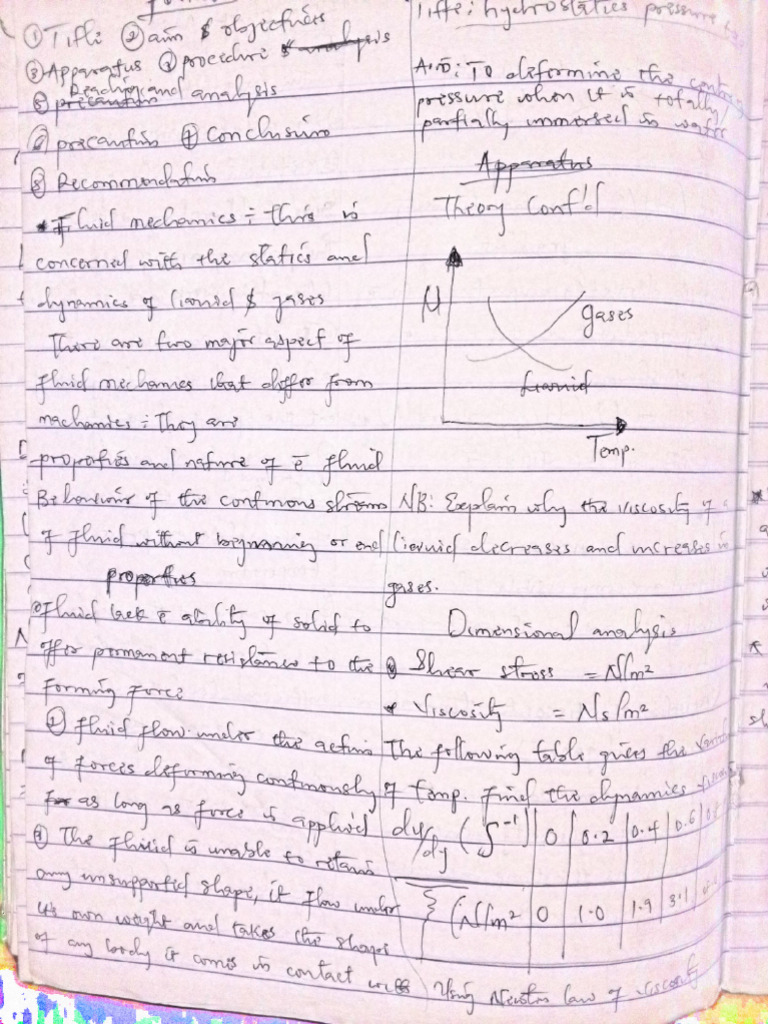 ① Title ② aim & objectives
③ Apparatus ④ procedure & analysis
⑤ precautin Reading and analysis
⑥ precautins ⑦ Conclusion
⑧ Recommendatins
Fluid mechanics ÷ this is
concerned with the statics and
dynamics of liquid & gases
There are two major aspect of
fluid mechanics that differ from
mechanics ÷ They are
properties and nature of ē fluid
Behaviour of the continous stream
of fluid without begynning or end
properties
① Fluid lack ē ability of solid to
offer permanent resistance to the
forming force
② Fluid flow under the action
of forces deforming continously
as long as force is applied
The Fluid is unable to retain
any unsupported shape, it flow under
its own weight and takes the shape
of any body it comes in contact with
Title: hydrostatics pressure
Aim: To determine the
pressure when it is totally/
partially immersed in water
Apparatus
Theory Cont'd
μ
gases
Liquid
Temp.
NB: Explain why the viscosity of
liquid decreases and increases in
gases.
Dimensional analysis
Shear stress = N/m²
Viscosity = Ns/m²
The following table gives the
of temp. Find the dynamics
du/dy (S⁻¹) 0 0.2 0.4 0.6
(N/m² 0 1.0 1.9 3.1
Using Newton law of viscosity